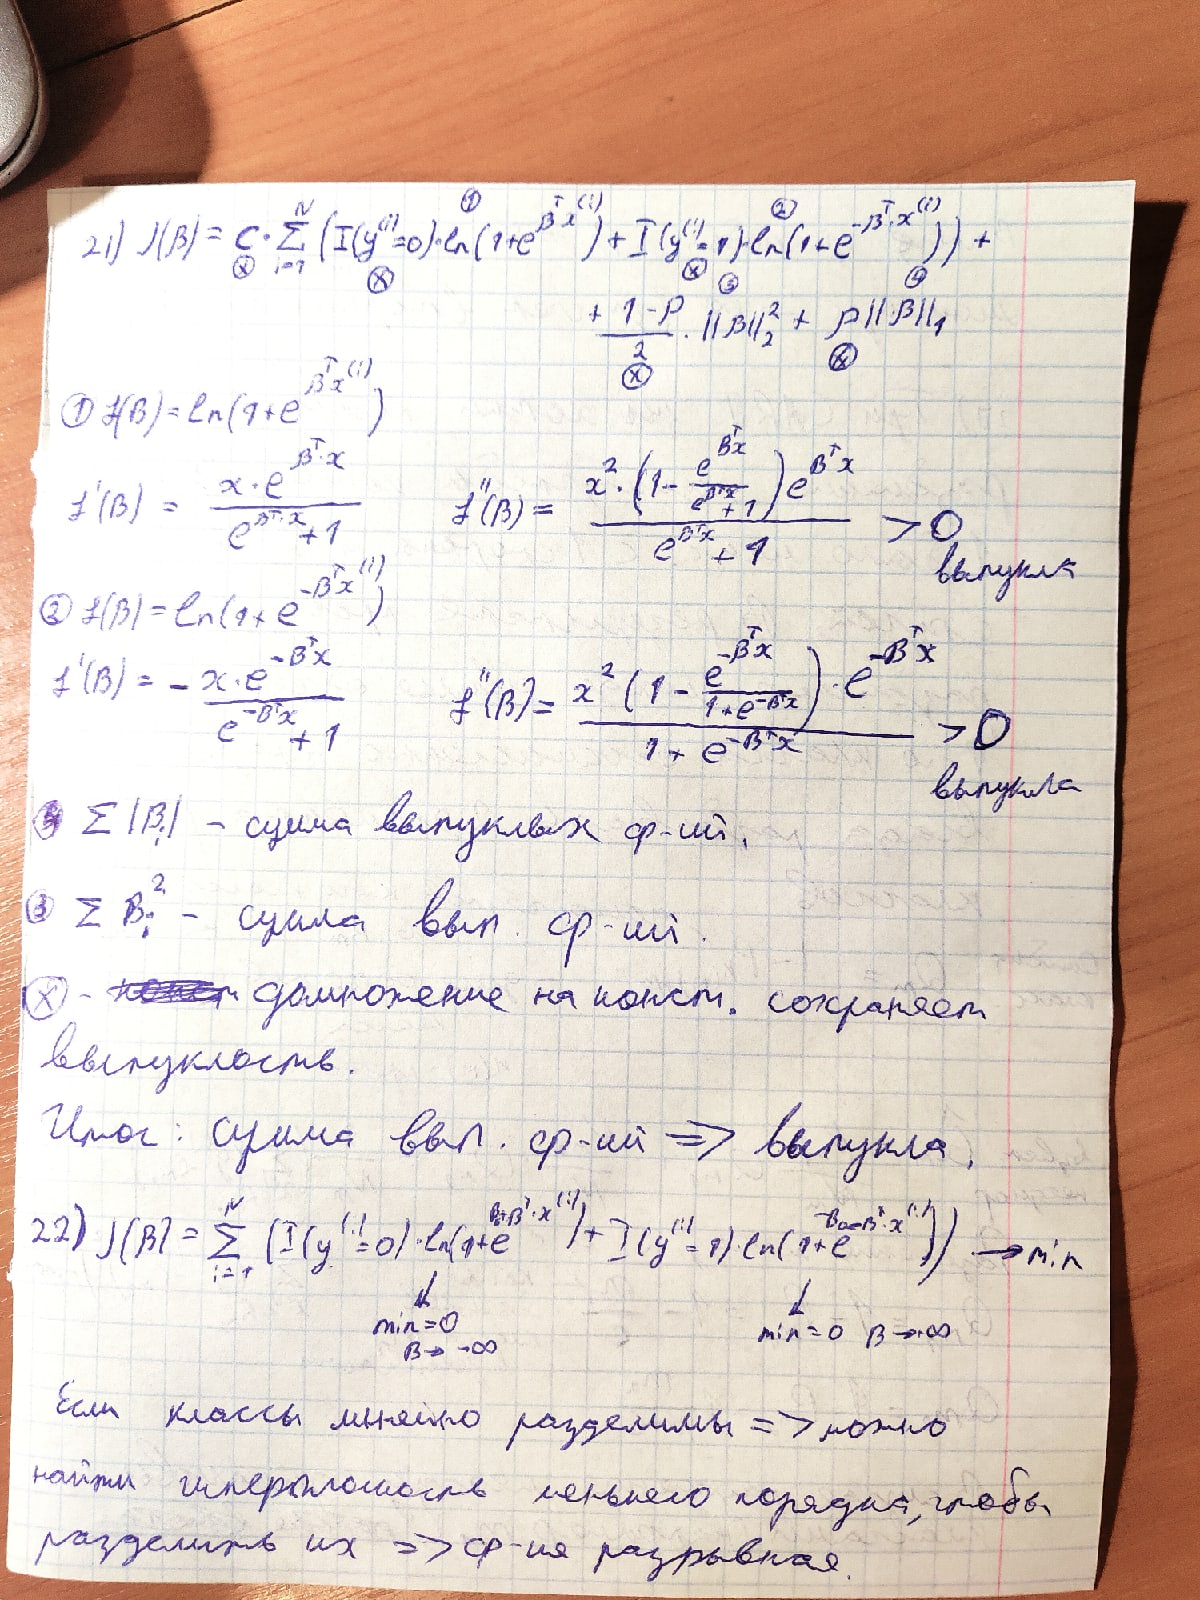 21) J(β) = C · Σ_{i=1}^{N} (I(y^{(i)}=0)·ln(1+e^{β^T x^{(i)}}) + I(y^{(i)}=1)·ln(1+e^{-β^T·x^{(i)}})) +
+ (1-ρ)/2 · ||β||_2^2 + ρ||β||_1
① f(β) = ln(1+e^{β^T x^{(i)}})
f'(β) = (x·e^{β^T·x})/(e^{β^T·x}+1) f''(β) = (x^2·(1 - e^{β^T x}/(e^{β^T x}+1)) e^{β^T x})/(e^{β^T x}+1) > 0
выпукла
② f(β) = ln(1+e^{-β^T x^{(i)}})
f'(β) = - (x·e^{-β^T x})/(e^{-β^T x}+1) f''(β) = (x^2 (1 - e^{-β^T x}/(1+e^{-β^T x}))·e^{-β^T x})/(1+e^{-β^T x}) > 0
выпукла
Σ|β_i| - сумма выпуклых ф-ий.
③ Σ β_i^2 - сумма вып. ф-ий.
ⓧ - домножение на конст. сохраняет
выпуклость.
Итог: сумма вып. ф-ий => выпукла.
22) J(β) = Σ_{i=1}^{N} (I(y^{(i)}=0)·ln(1+e^{β_0+β^T·x^{(i)}}) + I(y^{(i)}=1)·ln(1+e^{-β_0-β^T·x^{(i)}})) → min
min=0 min=0 β→∞
β→-∞
Если классы линейно разделимы => можно
найти гиперплоскость меньшего порядка, чтобы
разделить их => ф-ия разрывная.